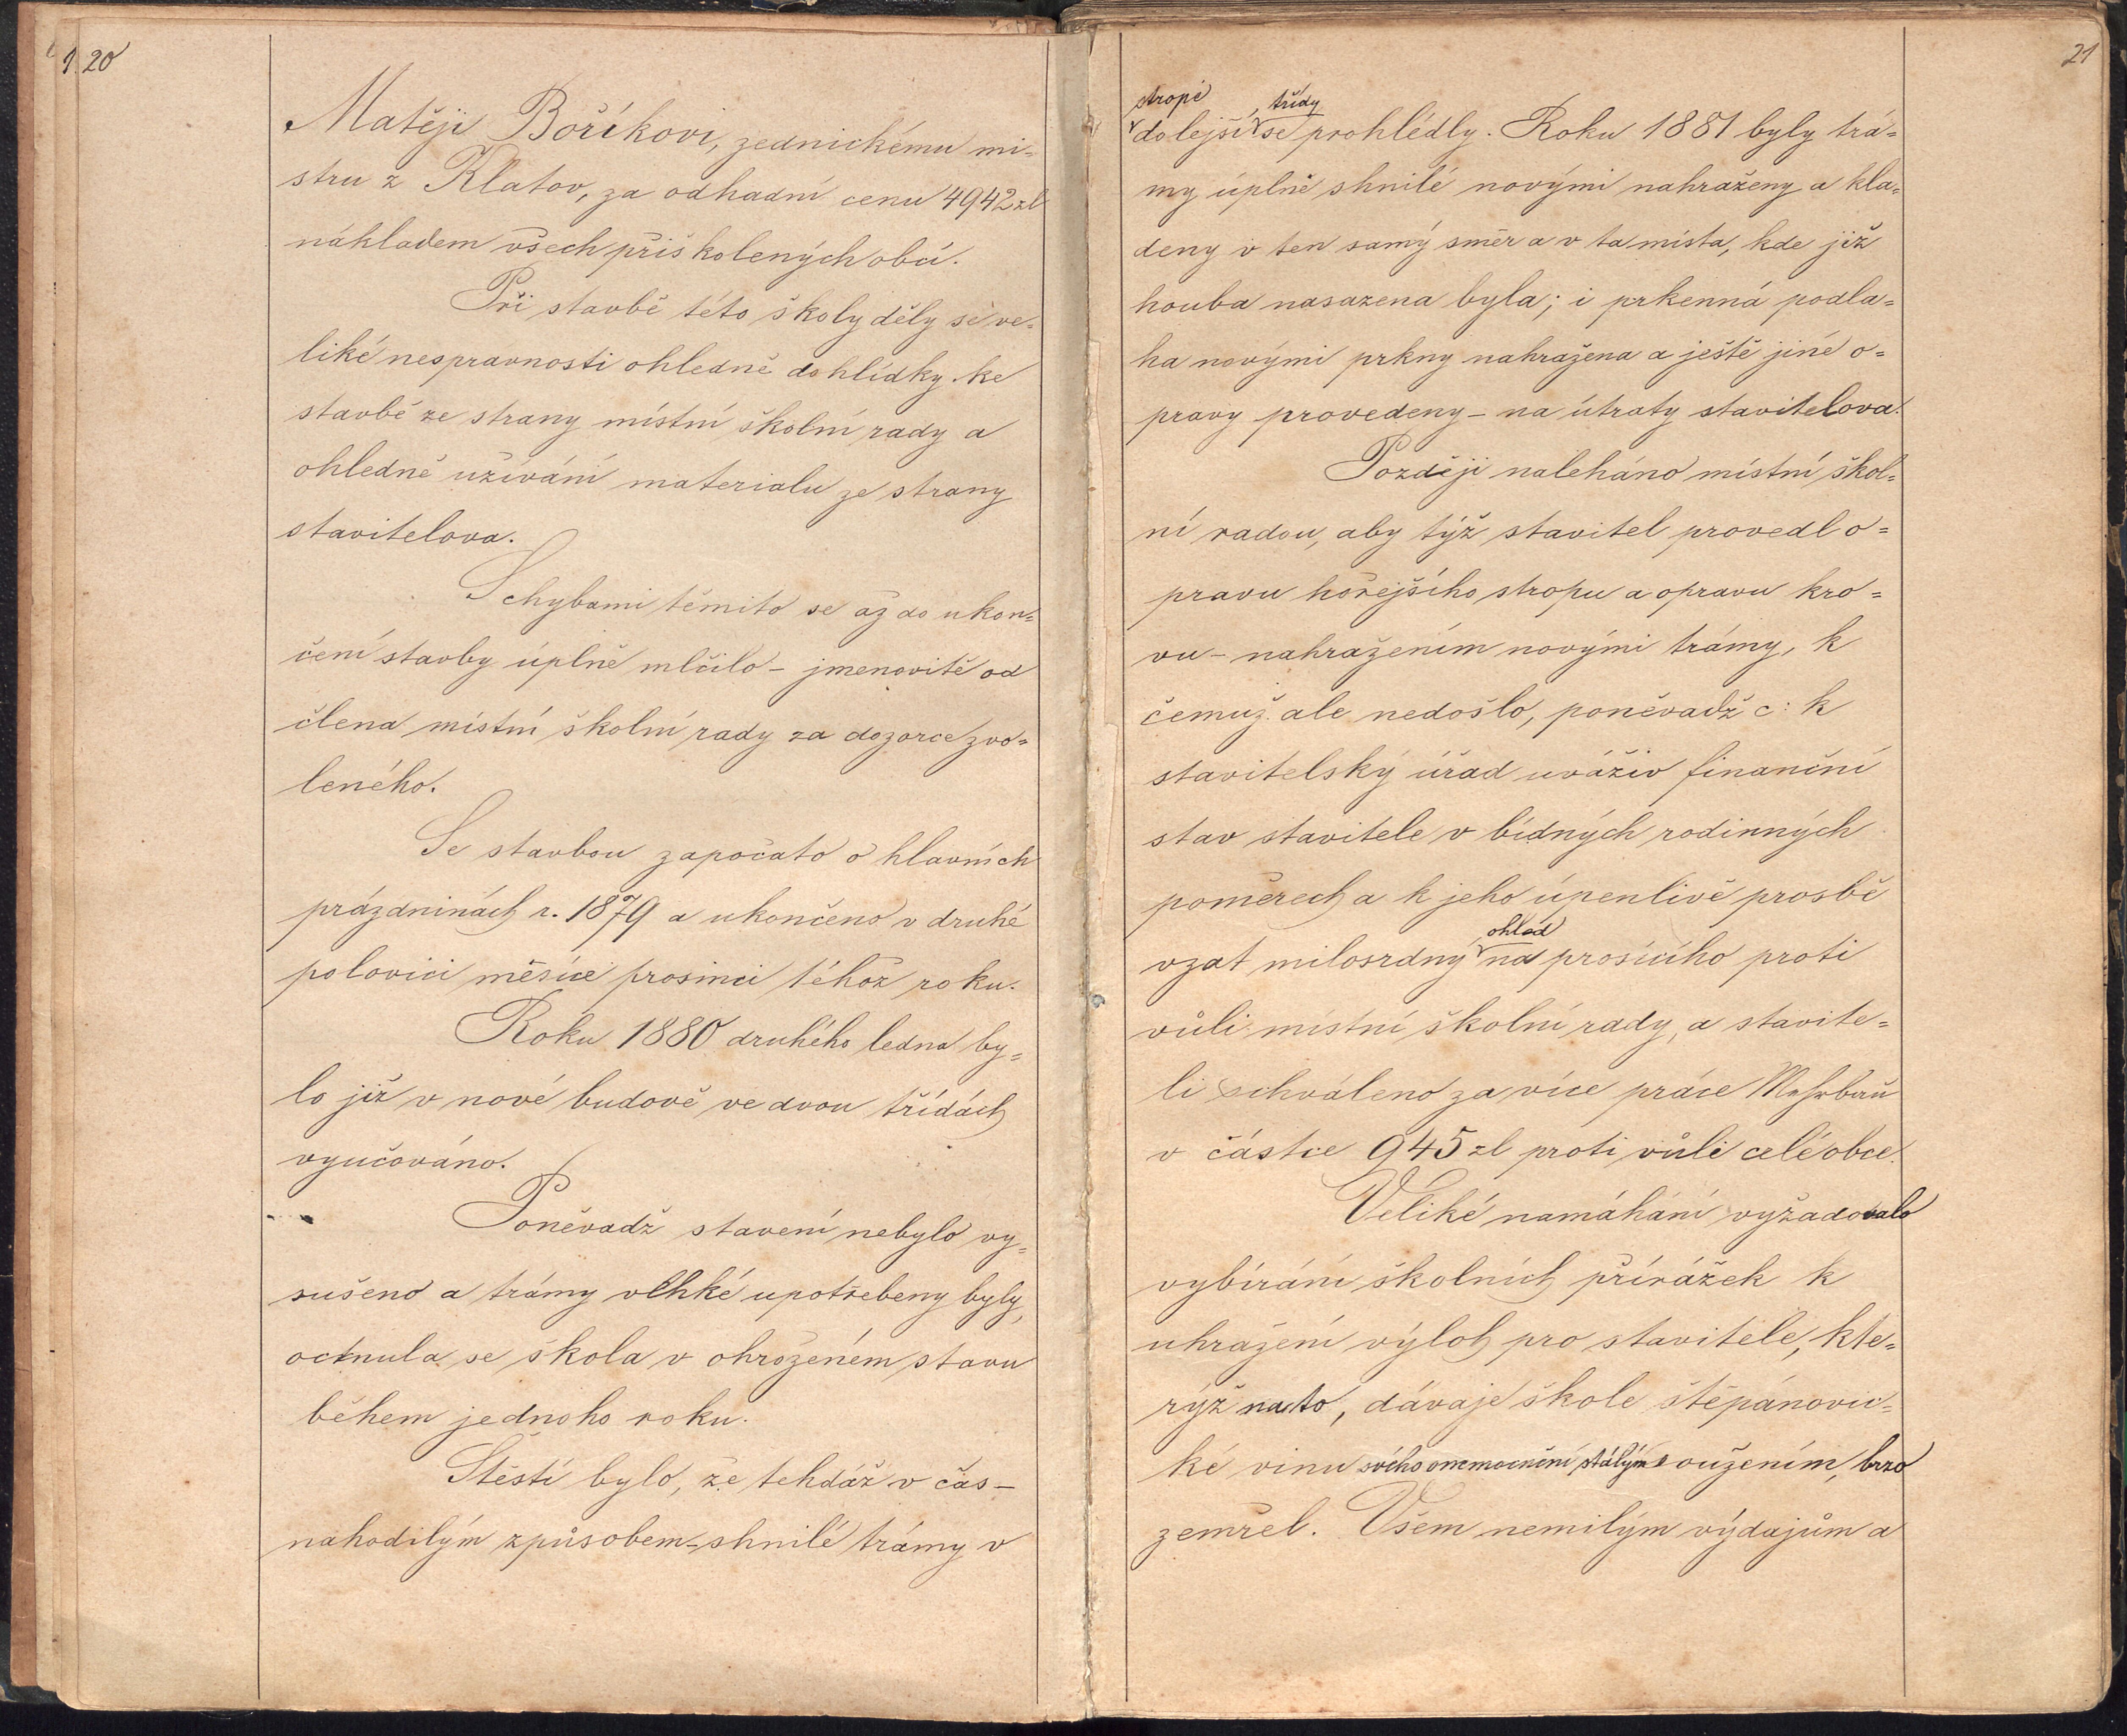 20
Matěji Boříkovi, zednickému mi-
stru z Klatov, za odhadní cenu 4942 zl
nákladem všech přiškolených obcí.
Při stavbě této školy děly se ve-
liké nespravnosti ohledně dohlídky ke
stavbě ze strany místní školní rady a
ohledně užívání materialu ze strany
stavitelova.
S chybami těmito se až do ukon-
čení stavby úplně mlčilo – jmenovitě od
člena místní školní rady za dozorce zvo-
leného.
Se stavbou započato o hlavních
prázdninách r. 1879 a ukončeno v druhé
polovici měsíce prosinci téhož roku.
Roku 1880 druhého ledna by-
lo již v nové budově ve dvou třídách
vyučováno.
Poněvadž stavení nebylo vy-
sušeno a trámy vlhké upotřebeny byly,
octnula se škola v ohroženém stavu
během jednoho roku.
Štěstí bylo, že tehdáž v čas –
nahodilým způsobem – shnilé trámy v
21
stropě třídy
dolejší se prohlédly. Roku 1881 byly trá-
my úplně shnilé novými nahraženy a kla-
deny v ten samý směr a v ta místa, kde již
houba nasazena byla; i prkenná podla-
ha novými prkny nahražena a ještě jiné o-
pravy provedeny – na útraty stavitelova.
Později naleháno místní škol-
ní radou, aby týž stavitel provedl o-
pravu hořejšího stropu a opravu kro-
vu – nahražením novými trámy, k
čemuž ale nedošlo, poněvadž c: k
stavitelský úřad uváživ finanční
stav stavitele v bídných rodinných
poměrech a k jeho úpenlivé prosbě
ohled
vzat milosrdný na prosícího proti
vůli místní školní rady, a stavite-
li schváleno za více práce Mehrbau
v částce 945 zl proti vůli celé obce.
Veliké namáhání vyžadovalo
vybírání školních přirážek k
uhražení výloh pro stavitele, kte-
rýž na to, dávaje škole štěpánovic-
ké vinu svého onemocnění stálým soužením, brzo
zemřel. Všem nemilým výdajům a